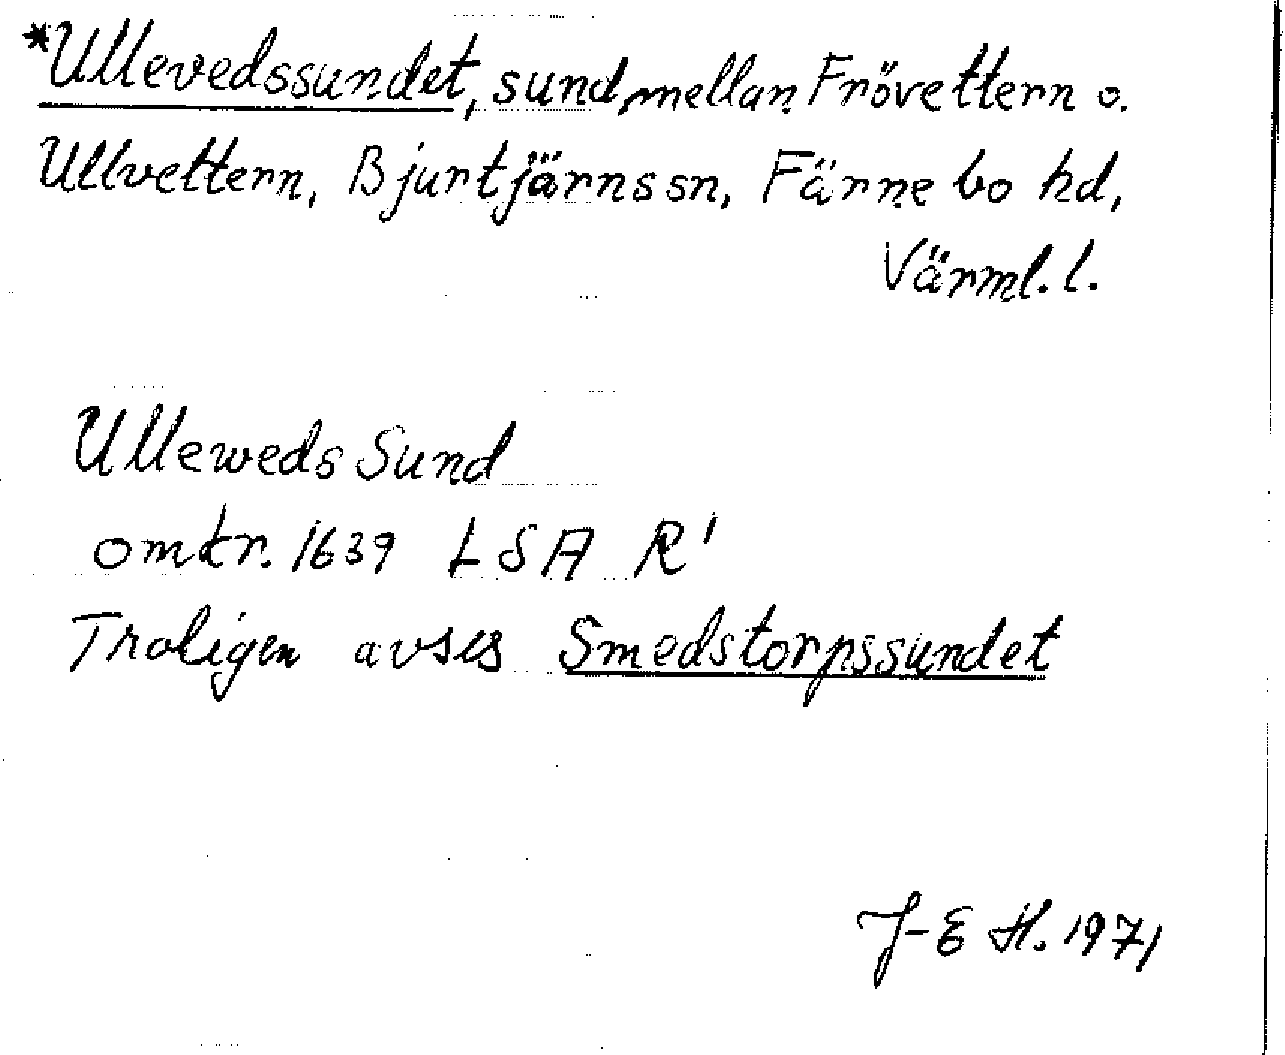 *Ullevedssundet, sund mellan Frövettern o.
Ullvettern, Bjurtjärns sn, Färnebo hd,
Värml. l.
Ulleweds Sund
omkr. 1639 LSA R'
Troligen avses Smedstorpssundet
J-E H. 1971